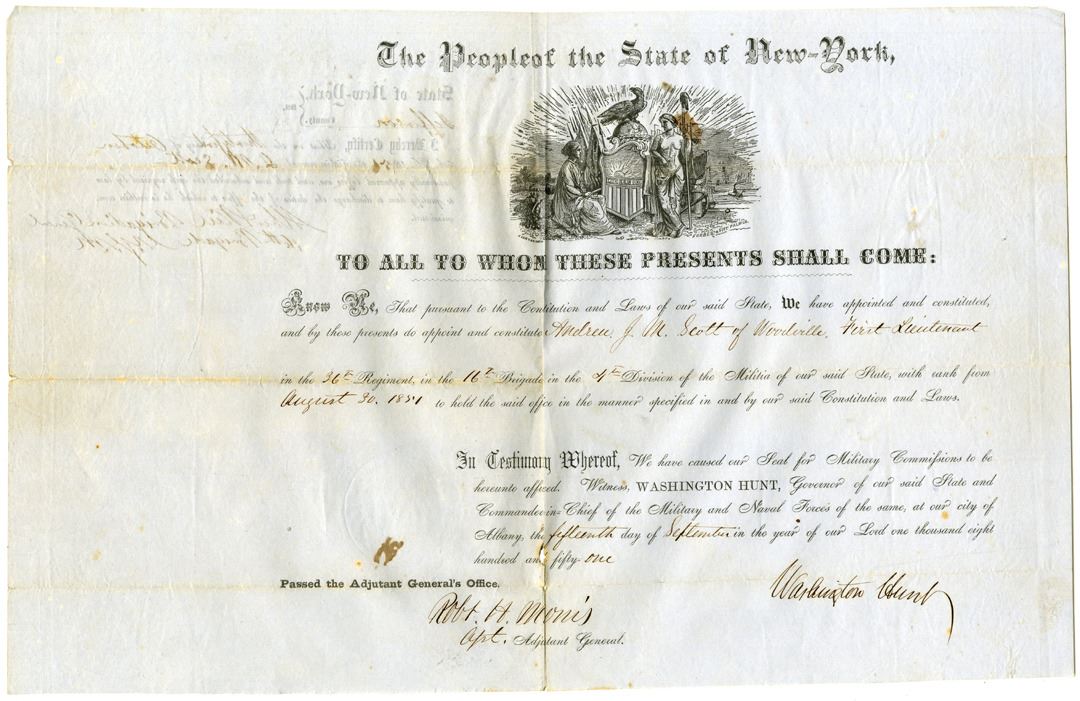 The People of the State of New-York,
TO ALL TO WHOM THESE PRESENTS SHALL COME:
Know Ye, That pursuant to the Contitution and Laws of our said State, We have appointed and constituted,
and by these presents do appoint and constitute Andrew J. M. Scott of Woodville, First Lieutenant
in the 36th Regiment, in the 16th Brigade in the 4th Division of the Militia of our said State, with rank from
August 30, 1851 to hold the said office in the manner specified in and by our said Constitution and Laws.
In Testimony Whereof, We have caused our Seal for Military Commissions to be
hereunto affixed. Witness, WASHINGTON HUNT, Governor of our said State and
Commander-in-Chief of the Military and Naval Forces of the same, at our city of
Albany, the fifteenth day of September in the year of our Lord one thousand eight
hundred and fifty-one
Passed the Adjutant General's Office.
Washington Hunt
Robt. H. Morris
Adjutant General.
State of New-York,
County.
I Hereby Certify,